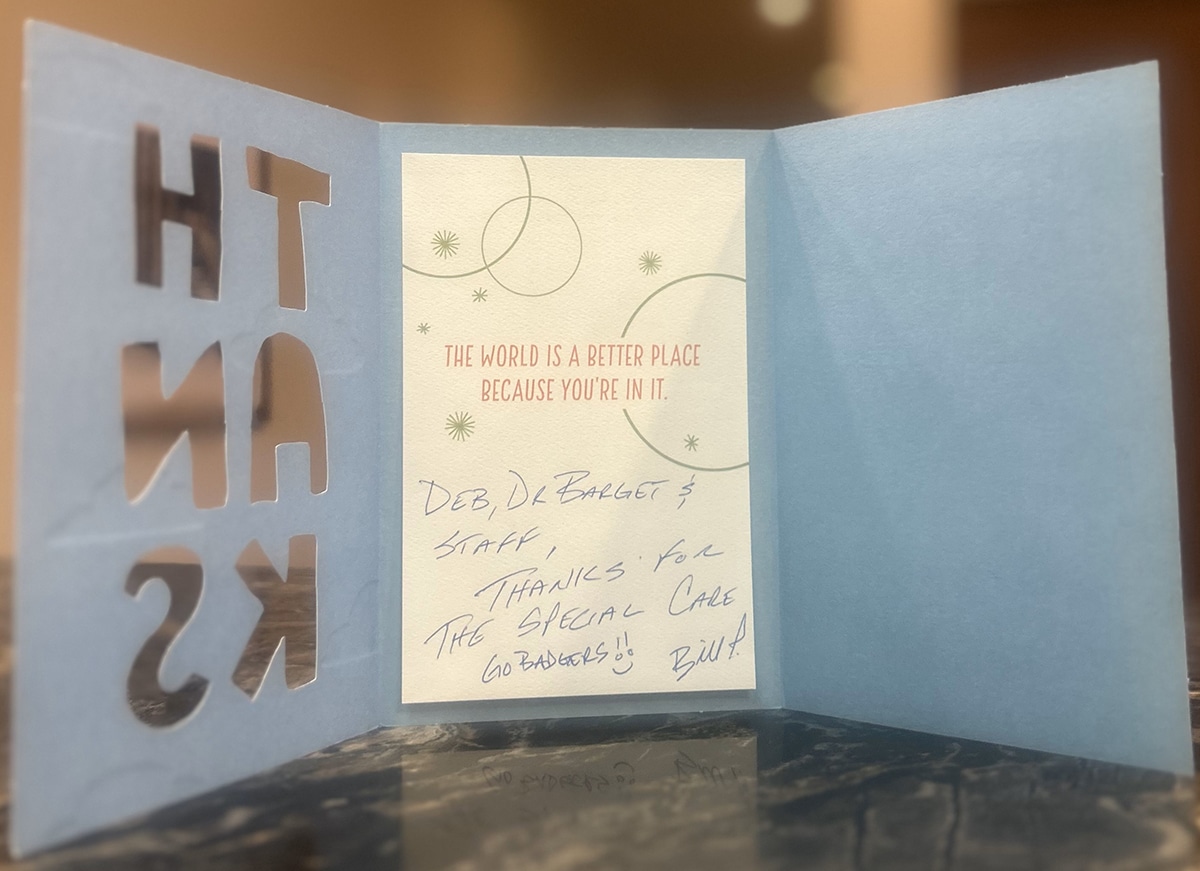 TH
AN
KS
THE WORLD IS A BETTER PLACE
BECAUSE YOU'RE IN IT.
DEB, DR BARGET &
STAFF,
THANKS FOR
THE SPECIAL CARE
GO BADGERS!!
Bill P.